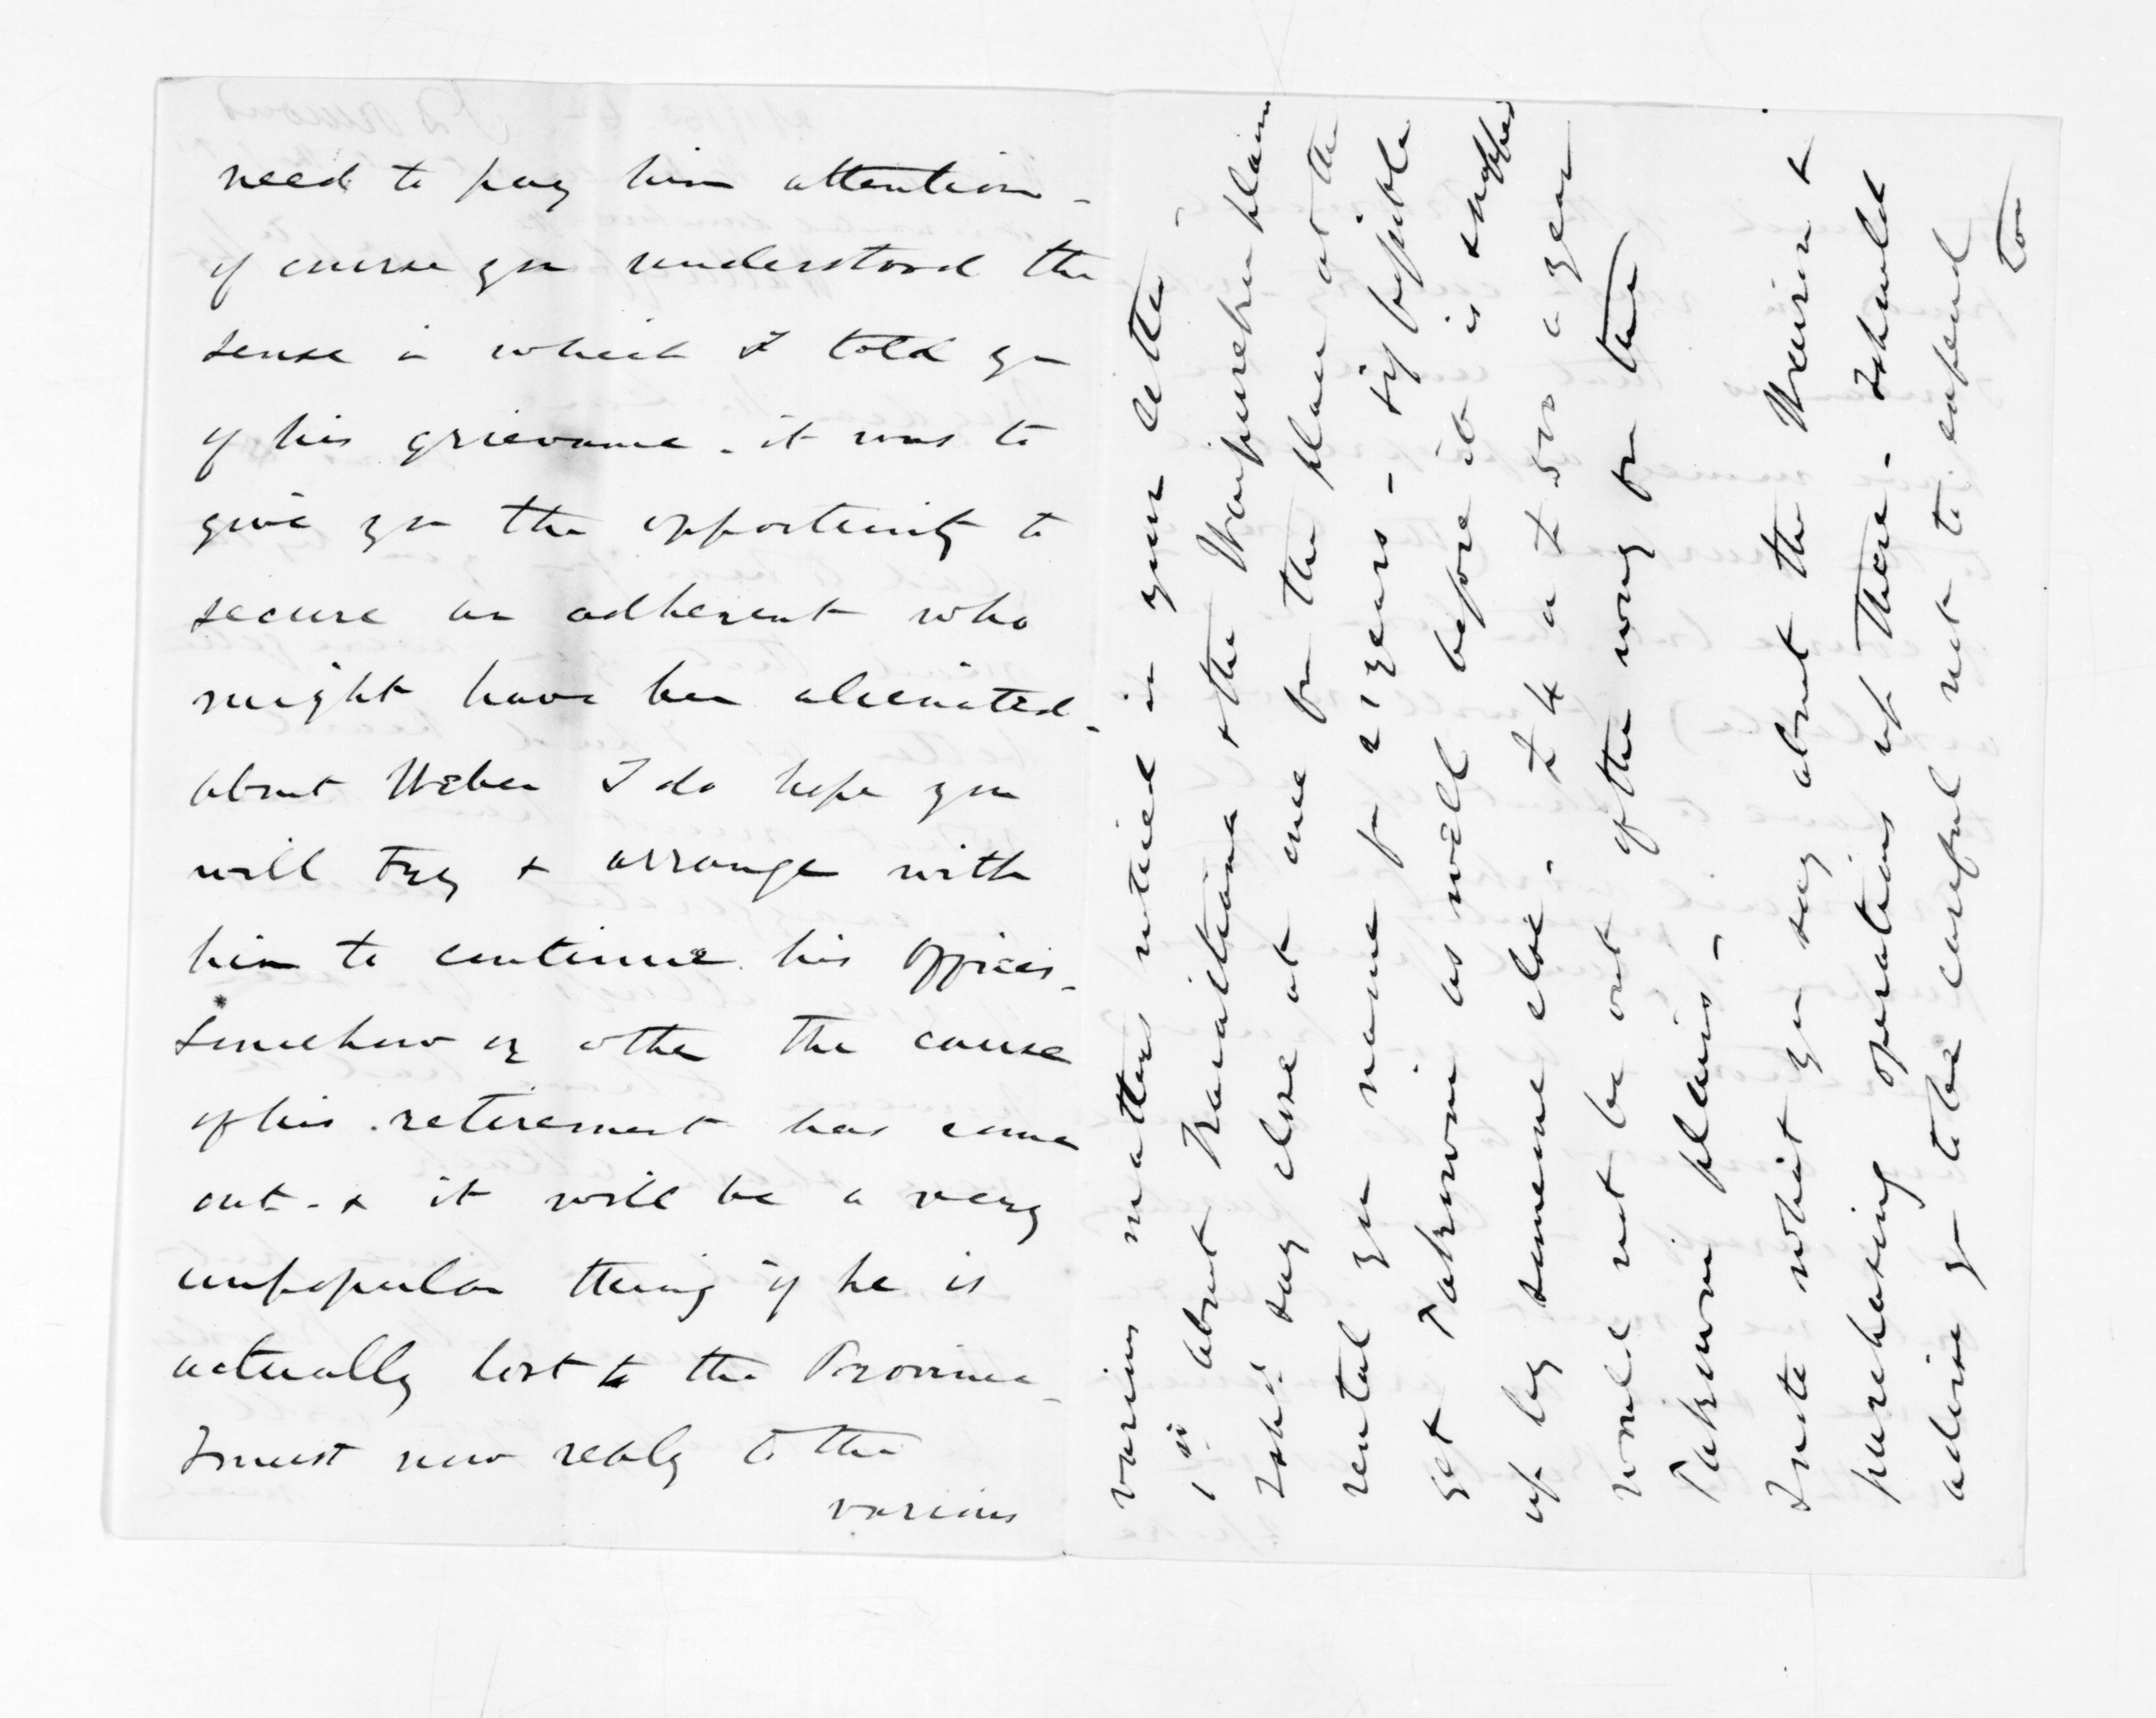 need to pay him attention -
of course you understood the
sense in which I told you
of his grievance - it was to
give you the opportunity to
secure an adherent who
might have been alienated -
about Weber I do hope you
will try & arrange with
him to continue his offices -
Somehow or other the cause
of his retirement has come
out - & it will be a very
unpopular thing if he is
actually lost to the Province -
I must now reply to the
various
various matters noticed in your letter -
1st about & the plain
I shd say close at once for the place at the
rental you name for 21 years - & if possible
get Takawai as well before it is snapped
up by someone else - £400 a £500 a year
would not be out of the way for the two
plains -
I note what you say about the Wairoa &
purchasing operations up there - I should
advise you to be careful not to expend
too